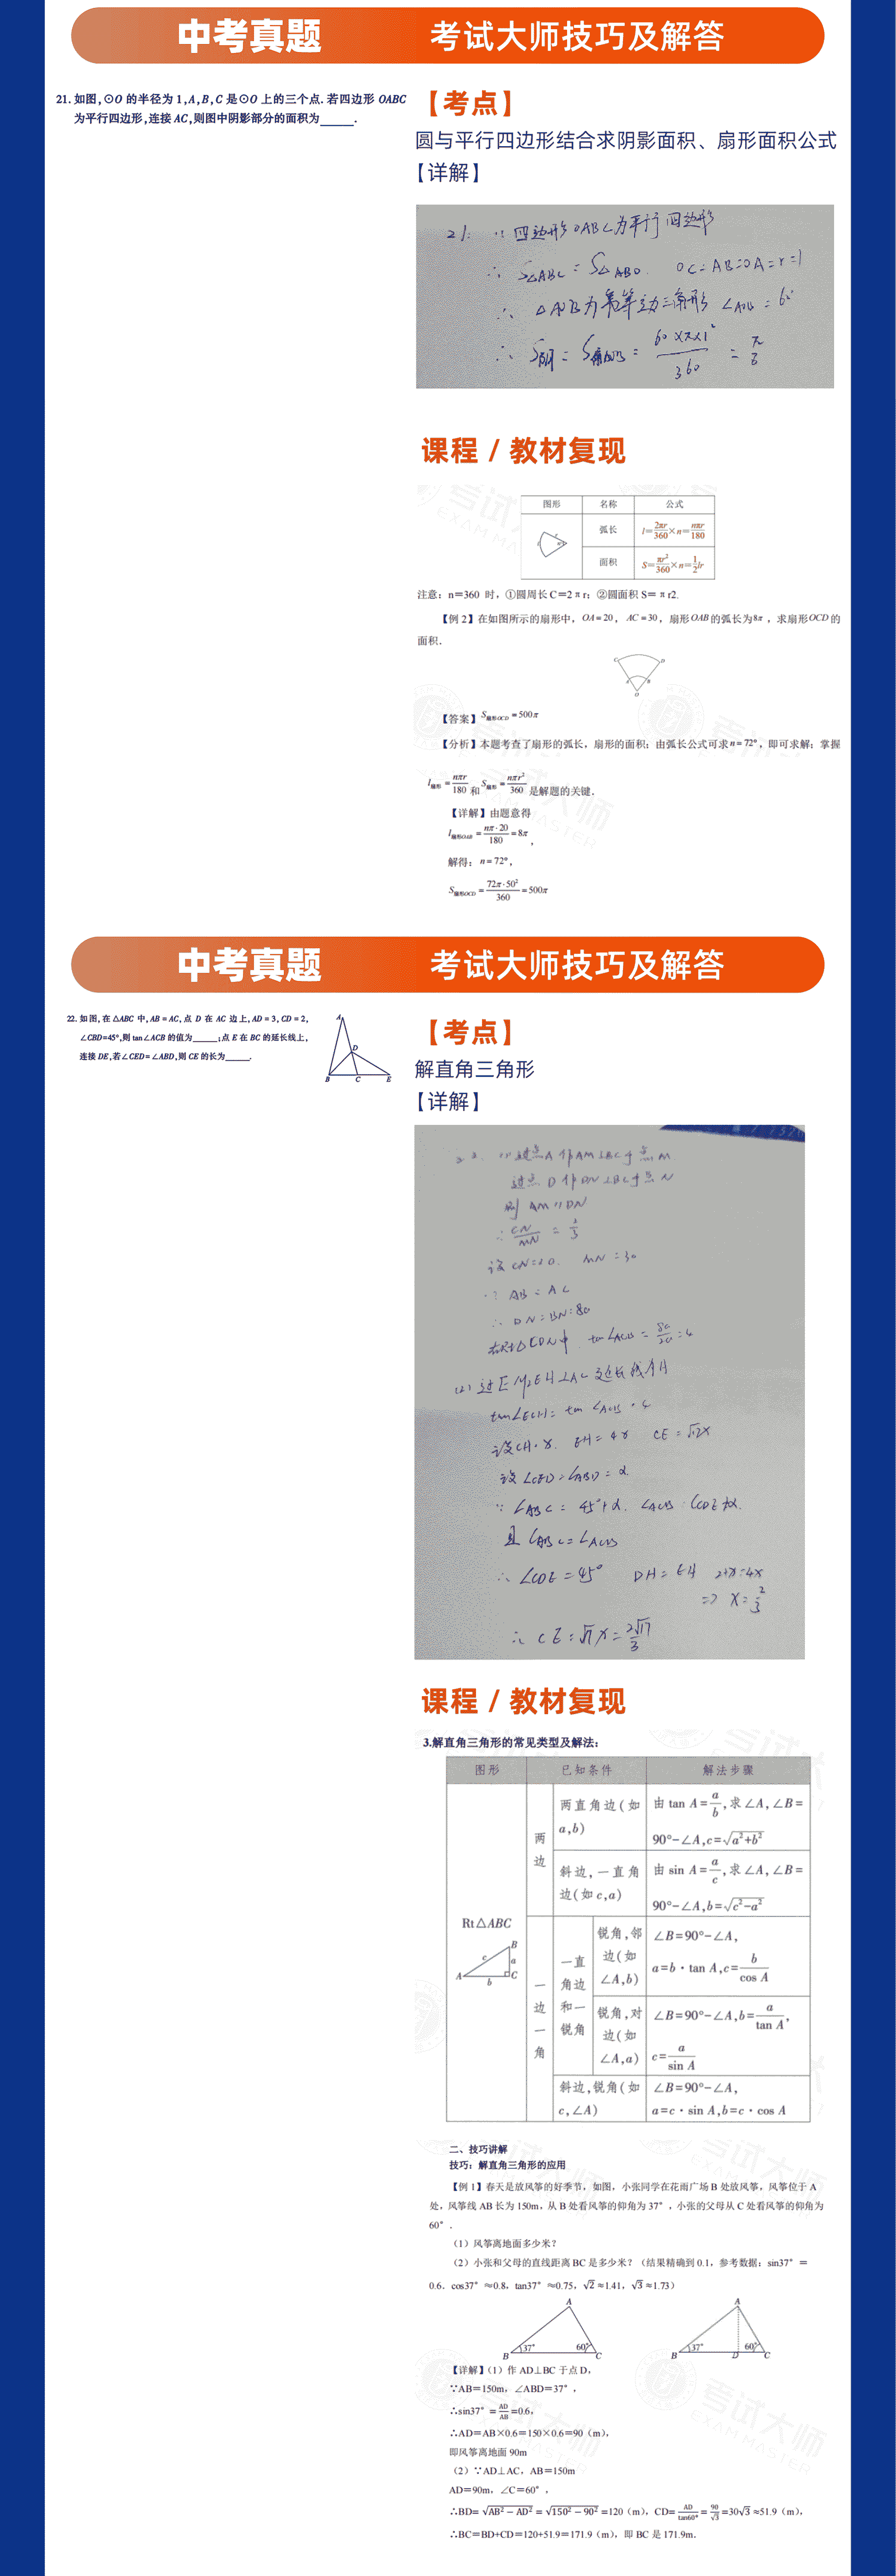 中考真题 考试大师技巧及解答
21. 如图,⊙O 的半径为 1,A,B,C 是⊙O 上的三个点. 若四边形 OABC
为平行四边形,连接 AC,则图中阴影部分的面积为______.
【考点】
圆与平行四边形结合求阴影面积、扇形面积公式
【详解】
21. ∵ 四边形OABC为平行四边形
∴ S△ABC = S△ABO. OC=AB=OA=r=1
∴ △AOB为等边三角形 ∠AOB = 60°
∴ S阴 = S扇AOB = 60×π×1²/360 = π/6
课程 / 教材复现
图形 名称 公式
弧长 l=2πr/360×n=nπr/180
面积 S=πr²/360×n=1/2lr
注意：n=360 时，①圆周长 C=2πr；②圆面积 S=πr2.
【例 2】在如图所示的扇形中，OA=20，AC=30，扇形OAB的弧长为8π，求扇形OCD的
面积．
C D
A B
O
【答案】S扇形OCD=500π
【分析】本题考查了扇形的弧长，扇形的面积；由弧长公式可求n=72°，即可求解；掌握
l扇形=nπr/180和S扇形=nπr²/360是解题的关键．
【详解】由题意得
l扇形OAB=nπ·20/180=8π，
解得：n=72°，
S扇形OCD=72π·50²/360=500π
中考真题 考试大师技巧及解答
22. 如图,在△ABC 中,AB=AC,点 D 在 AC 边上,AD=3,CD=2,
∠CBD=45°,则 tan∠ACB 的值为______;点 E 在 BC 的延长线上,
连接 DE,若∠CED=∠ABD,则 CE 的长为______.
A
D
B C E
【考点】
解直角三角形
【详解】
22. (1) 过点A作AM⊥BC于点M
过点D作DN⊥BC于点N
则 AM∥DN
∴ CN/MN = 2/3
设 CN=2a. MN=3a
∵ AB=AC
∴ DN=BN=8a
在Rt△CDN中 tan∠ACB = 8a/2a = 4
(2) 过E作EH⊥AC交延长线于H
tan∠ECH = tan∠ACB = 4
设CH=x. EH=4x CE=√17x
设 ∠CED=∠ABD=α.
∵ ∠ABC = 45°+α. ∠ACB=∠CDE+α.
且 ∠ABC=∠ACB
∴ ∠CDE=45° DH=EH 2+x=4x
=> x=2/3
∴ CE=√17x=2√17/3
课程 / 教材复现
3.解直角三角形的常见类型及解法：
图形 已知条件 解法步骤
Rt△ABC
B
c a
A b C
两边
两直角边(如a,b) 由 tan A=a/b,求∠A,∠B=
90°-∠A,c=√(a²+b²)
斜边,一直角边(如c,a) 由 sin A=a/c,求∠A,∠B=
90°-∠A,b=√(c²-a²)
一边一角
一直角边和一锐角
锐角,邻边(如∠A,b) ∠B=90°-∠A,
a=b·tan A,c=b/cos A
锐角,对边(如∠A,a) ∠B=90°-∠A,b=a/tan A,
c=a/sin A
斜边,锐角(如c,∠A) ∠B=90°-∠A,
a=c·sin A,b=c·cos A
二、技巧讲解
技巧：解直角三角形的应用
【例 1】春天是放风筝的好季节，如图，小张同学在花雨广场 B 处放风筝，风筝位于 A
处，风筝线 AB 长为 150m，从 B 处看风筝的仰角为 37°，小张的父母从 C 处看风筝的仰角为
60°．
（1）风筝离地面多少米？
（2）小张和父母的直线距离 BC 是多少米？（结果精确到 0.1，参考数据：sin37°=
0.6．cos37°≈0.8，tan37°≈0.75，√2≈1.41，√3≈1.73）
A
B 37° 60° C
A
B 37° D 60° C
【详解】（1）作 AD⊥BC 于点 D，
∵AB=150m，∠ABD=37°，
∴sin37°=AD/AB=0.6，
∴AD=AB×0.6=150×0.6=90（m），
即风筝离地面 90m
（2）∵AD⊥AC，AB=150m
AD=90m，∠C=60°，
∴BD=√(AB²−AD²)=√(150²−90²)=120（m），CD=AD/tan60°=90/√3=30√3≈51.9（m），
∴BC=BD+CD=120+51.9=171.9（m），即 BC 是 171.9m．
考试大师
EXAM MASTER